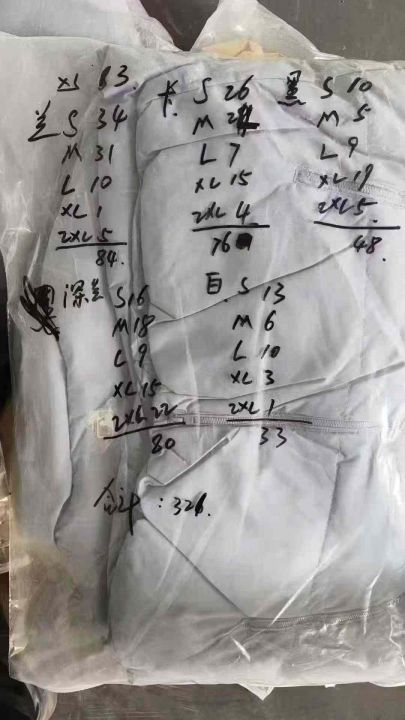 XS 83.
兰 S 34
M 31
L 10
XL 1
2XL 5
84.
卡 S 26
M 24
L 7
XL 15
2XL 4
76
黑 S 10
M 5
L 9
XL 19
2XL 5
48.
深兰 S 16
M 18
L 9
XL 15
2XL 22
80
白 S 13
M 6
L 10
XL 3
2XL 1
33
合计:321.